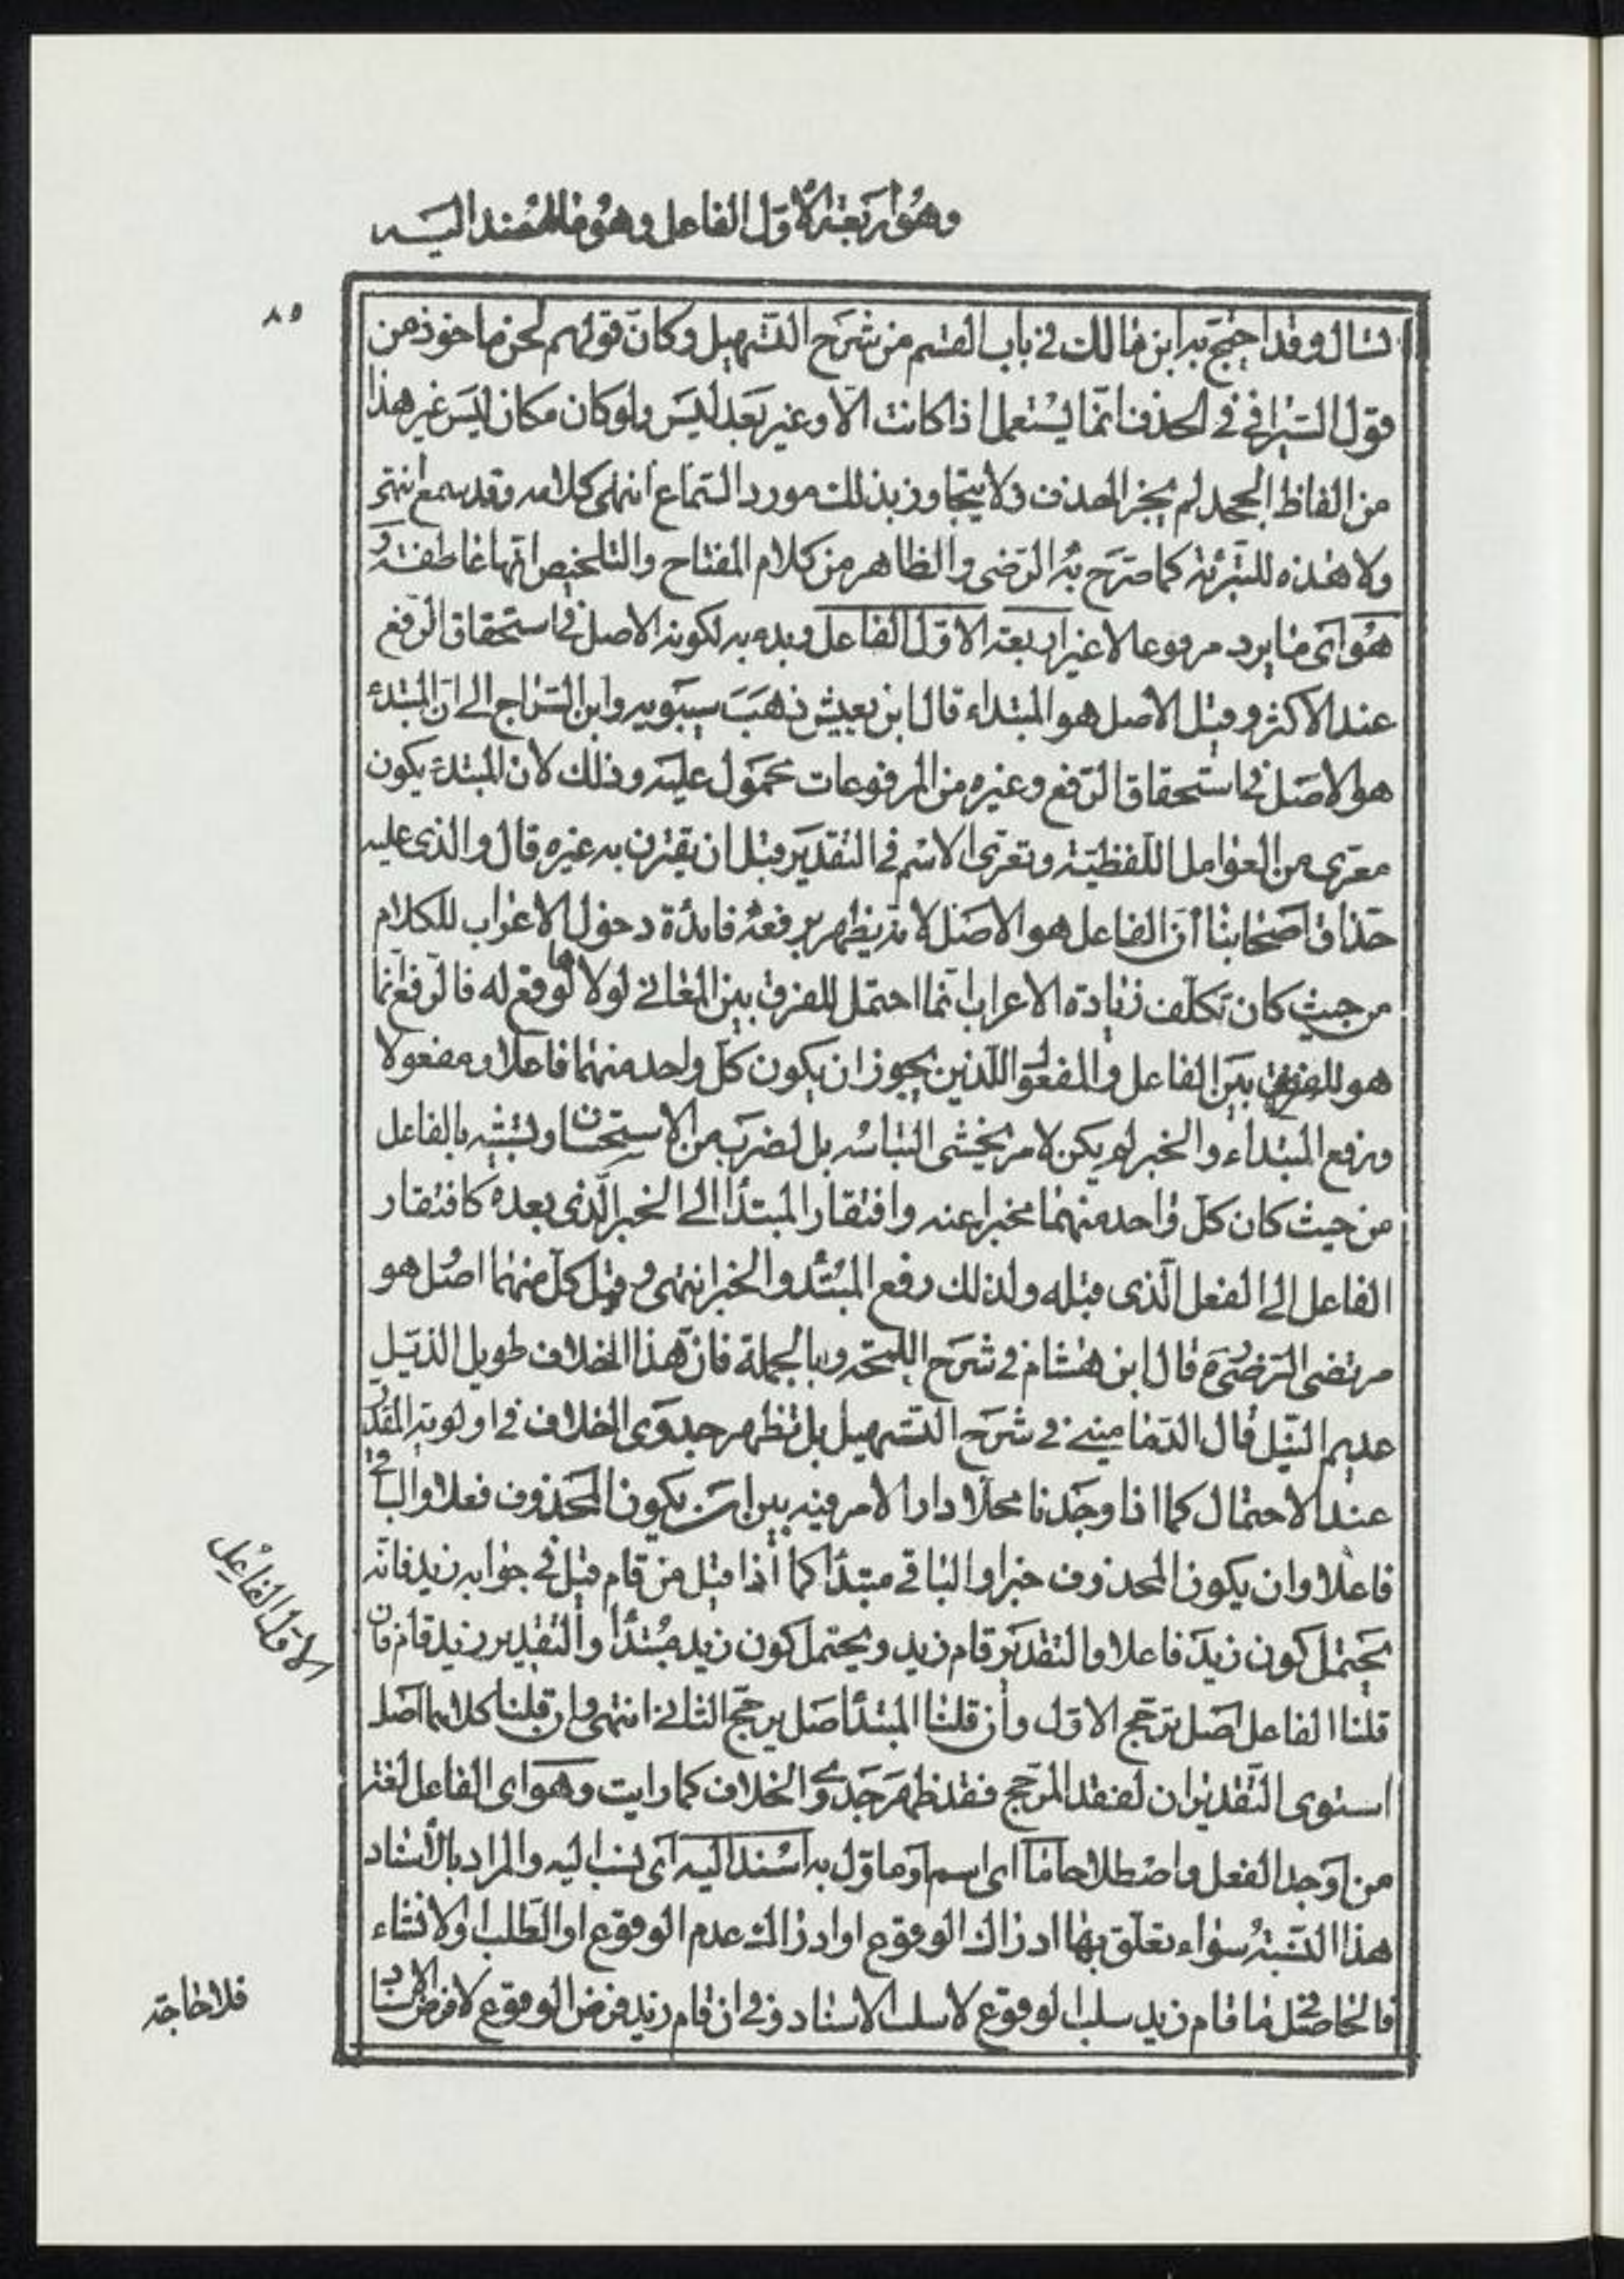 وهو اربعة الاول الفاعل وهو ما اسند اليه
٨٥
تسال وقد احتج به ابن مالك في باب القسم من شرح التسهيل وكان قولهم لحن ماخوذ من
قول السيرافي في الحذف انما يستعمل اذا كانت الا وغير بعد ليس ولو كان مكان ليس غيرهذا
من الفاظ الجحد لم يجز الحذف ولا يتجاوز بذلك مورد السماع انتهى كلامه وقد سمع انتهى
ولا هذه للتبرئة كما صرح به الرضى والظاهر من كلام المفتاح والتلخيص انها عاطفة و
هو اى ما يرد مرفوعا لا غير اربعة الاول الفاعل وبدء به لكونه الاصل في استحقاق الرفع
عند الاكثر وقيل الاصل هو المبتداء قال ابن يعيش ذهب سيبويه وابن السراج الى ان المبتدء
هو الاصل في استحقاق الرفع وغيره من المرفوعات محمول عليه وذلك لان المبتدء يكون
معرى من العوامل اللفظية وتعرى الاسم في التقدير قبل ان يقترن به غيره قال والذى عليه
حذاق اصحابنا أن الفاعل هو الاصل لانه يظهر برفعه فائدة دخول الاعراب للكلام
من حيث كان تكلف زيادة الاعراب انما احتمل للفرق بين المعاني لولاها لوقع له فالرفع انما
هو للفرق بين الفاعل والمفعول اللذين يجوز ان يكون كل واحد منهما فاعلا ومفعولا
ورفع المبتداء والخبر لم يكن لامر يخشى التباسه بل لضرب من الاستحسان وتشبيه بالفاعل
من حيث كان كل واحد منهما مخبرا عنه وافتقار المبتدأ الى الخبر الذى بعده كافتقار
الفاعل الى الفعل الذى قبله ولذلك رفع المبتدأ والخبر انتهى وقيل كل منهما اصل هو
مرتضى الرضى ره قال ابن هشام في شرح اللمحه وبالجملة فان هذا الخلاف طويل الذيل
عديم النيل قال الدماميني في شرح التسهيل بل تظهر جدوى الخلاف في اولوية المقدر
عند الاحتمال كما اذا وجدنا محلا دار الامر فيه بين ان يكون المحذوف فعلا والباقي
فاعلا وان يكون المحذوف خبرا والباقي مبتدأ كما أذا قيل من قام قيل في جوابه زيد فانه
يحتمل كون زيد فاعلا والتقدير قام زيد ويحتمل كون زيد مبتدأ والتقدير زيد قام فان
قلنا الفاعل اصل ترجح الاول وأن قلنا المبتدأ اصل يرجح الثاني انتهى وان قلنا كلاهما اصل
استوى التقديران لفقد المرجح فقد ظهر جدوى الخلاف كما رايت وهو اى الفاعل لغة
من اوجد الفعل واصطلاحا ما اى اسم او ما اول به اسند اليه اى نسب اليه والمراد بالأسناد
هذا النسبة سواء تعلق بها ادراك الوقوع او ادراك عدم الوقوع او الطلب او الانشاء
فالحاصل في ما قام زيد سلب الوقوع لا سلب الاسناد وفي ان قام زيد فرض الوقوع لا فرض الاسناد
الاول الفاعل
فلا حاجة